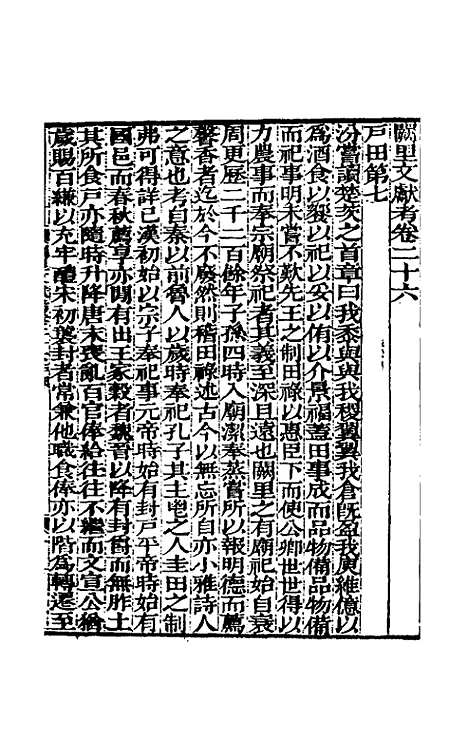 闕里文獻考卷二十六
戶田第七
汾嘗讀楚茨之首章曰我黍與與我稷翼翼我倉旣盈我庾維億以
爲酒食以饗以祀以妥以侑以介景福蓋田事成而品物備品物備
而祀事明未嘗不歎先王之制田祿以惠臣下而使公卿世世得以
力農事而奉宗廟祭祀者其義至深且遠也闕里之有廟祀始自衰
周更歷二千二百餘年子孫四時入廟潔奉蒸嘗所以報明德而薦
馨香者迄於今不廢然則稽田祿述古今以無忘所自亦小雅詩人
之意也考自秦以前魯人以歲時奉祀孔子其主鬯之人圭田之制
弗可得詳已漢初始以宗子奉祀事元帝時始有封戶平帝時始有
國邑而春秋薦享亦閒有出王家穀者魏晉以降有封爵而無胙土
其所食戶亦隨時升降唐末喪亂百官俸給往往不繼而文宣公猶
歲賜百縑以充牢醴宋初襲封者常兼他職食俸亦以階爲轉遷至